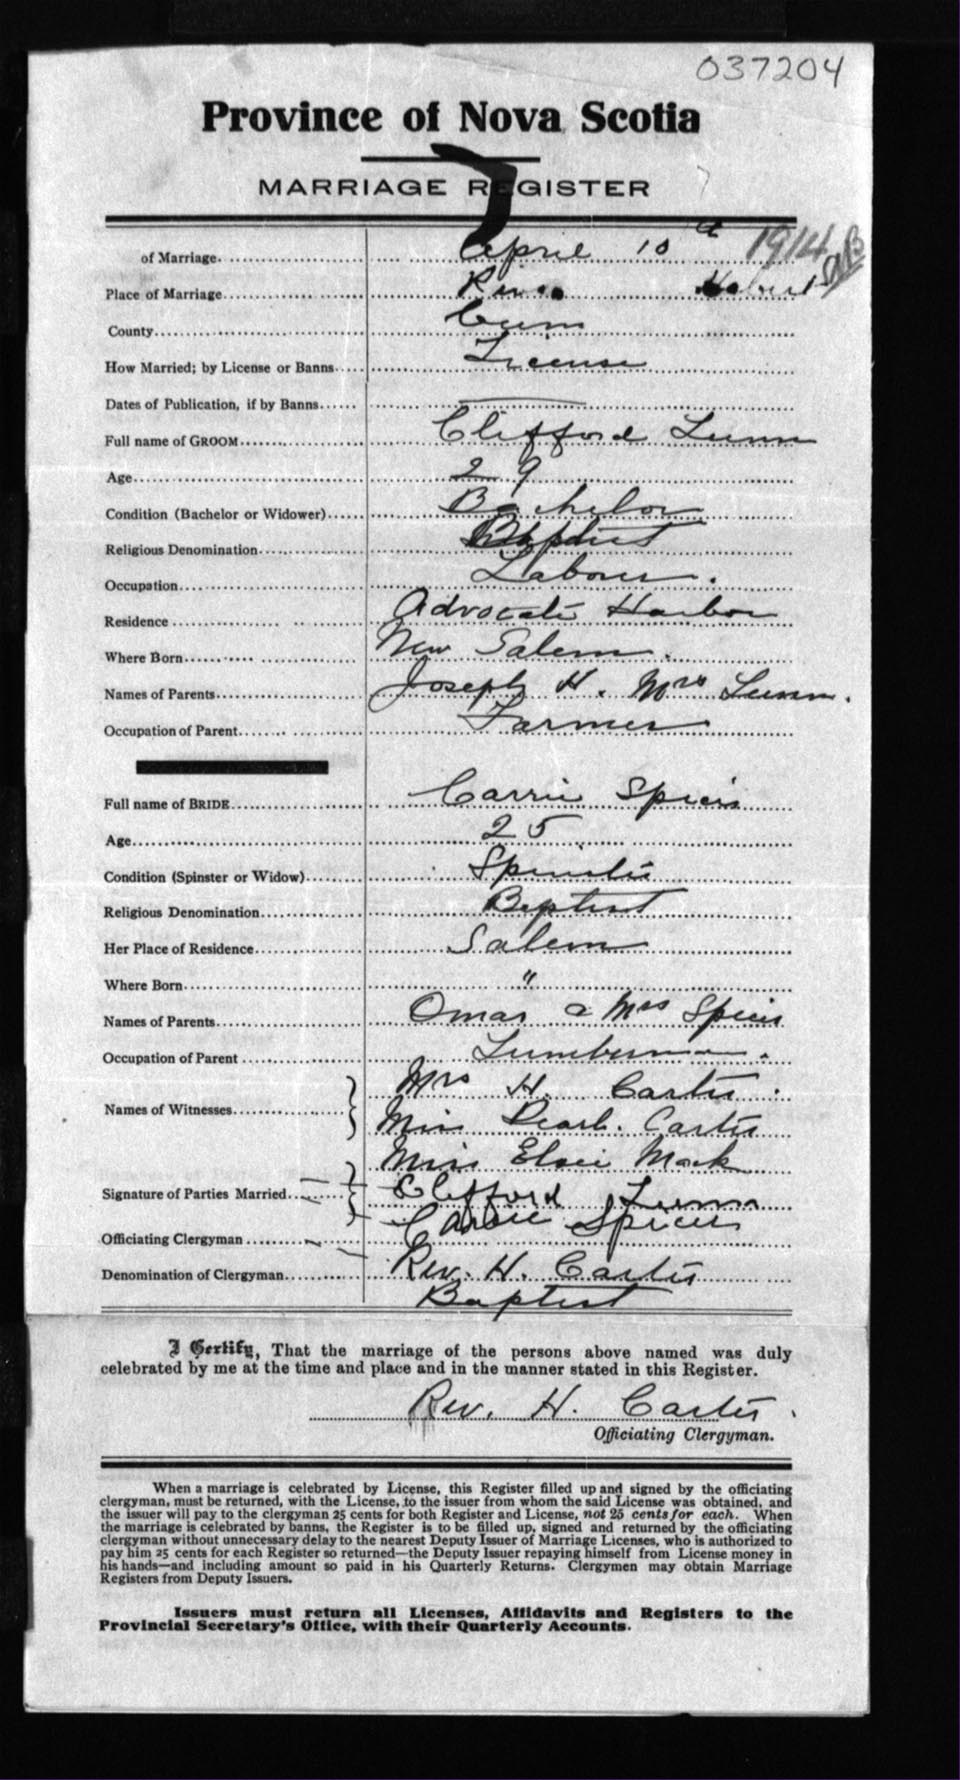 037204
Province of Nova Scotia
MARRIAGE REGISTER
of Marriage April 10th 1914
Place of Marriage River Hebert
County Cum
How Married; by License or Banns License
Dates of Publication, if by Banns
Full name of GROOM Clifford Lunn
Age 29
Condition (Bachelor or Widower) Bachelor
Religious Denomination Baptist
Occupation Laborer.
Residence Advocate Harbor
Where Born New Salem.
Names of Parents Joseph H. Mrs Lunn.
Occupation of Parent Farmer
Full name of BRIDE Carrie Spicer
Age 25
Condition (Spinster or Widow) Spinster
Religious Denomination Baptist
Her Place of Residence Salem
Where Born "
Names of Parents Omar & Mrs Spicer
Occupation of Parent Lumberman.
Names of Witnesses Mrs H. Carter
Miss Pearl. Carter
Miss Elsie Mack
Signature of Parties Married Clifford Lunn
Carrie Spicer
Officiating Clergyman
Denomination of Clergyman Rev. H. Carter
Baptist
I Certify, That the marriage of the persons above named was duly
celebrated by me at the time and place and in the manner stated in this Register.
Rev. H. Carter.
Officiating Clergyman.
When a marriage is celebrated by License, this Register filled up and signed by the officiating
clergyman, must be returned, with the License, to the issuer from whom the said License was obtained, and
the issuer will pay to the clergyman 25 cents for both Register and License, not 25 cents for each. When
the marriage is celebrated by banns, the Register is to be filled up, signed and returned by the officiating
clergyman without unnecessary delay to the nearest Deputy Issuer of Marriage Licenses, who is authorized to
pay him 25 cents for each Register so returned—the Deputy Issuer repaying himself from License money in
his hands—and including amount so paid in his Quarterly Returns. Clergymen may obtain Marriage
Registers from Deputy Issuers.
Issuers must return all Licenses, Affidavits and Registers to the
Provincial Secretary's Office, with their Quarterly Accounts.